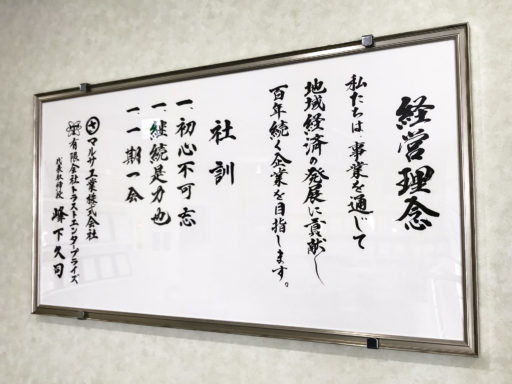 経営理念
私たちは、事業を通じて
地域経済の発展に貢献し
百年続く企業を目指します。
社訓
一、初心不可忘
一、継続是力也
一、一期一会
サ マルサ工業株式会社
有限会社トラストエンタープライズ
代表取締役 峰下久司